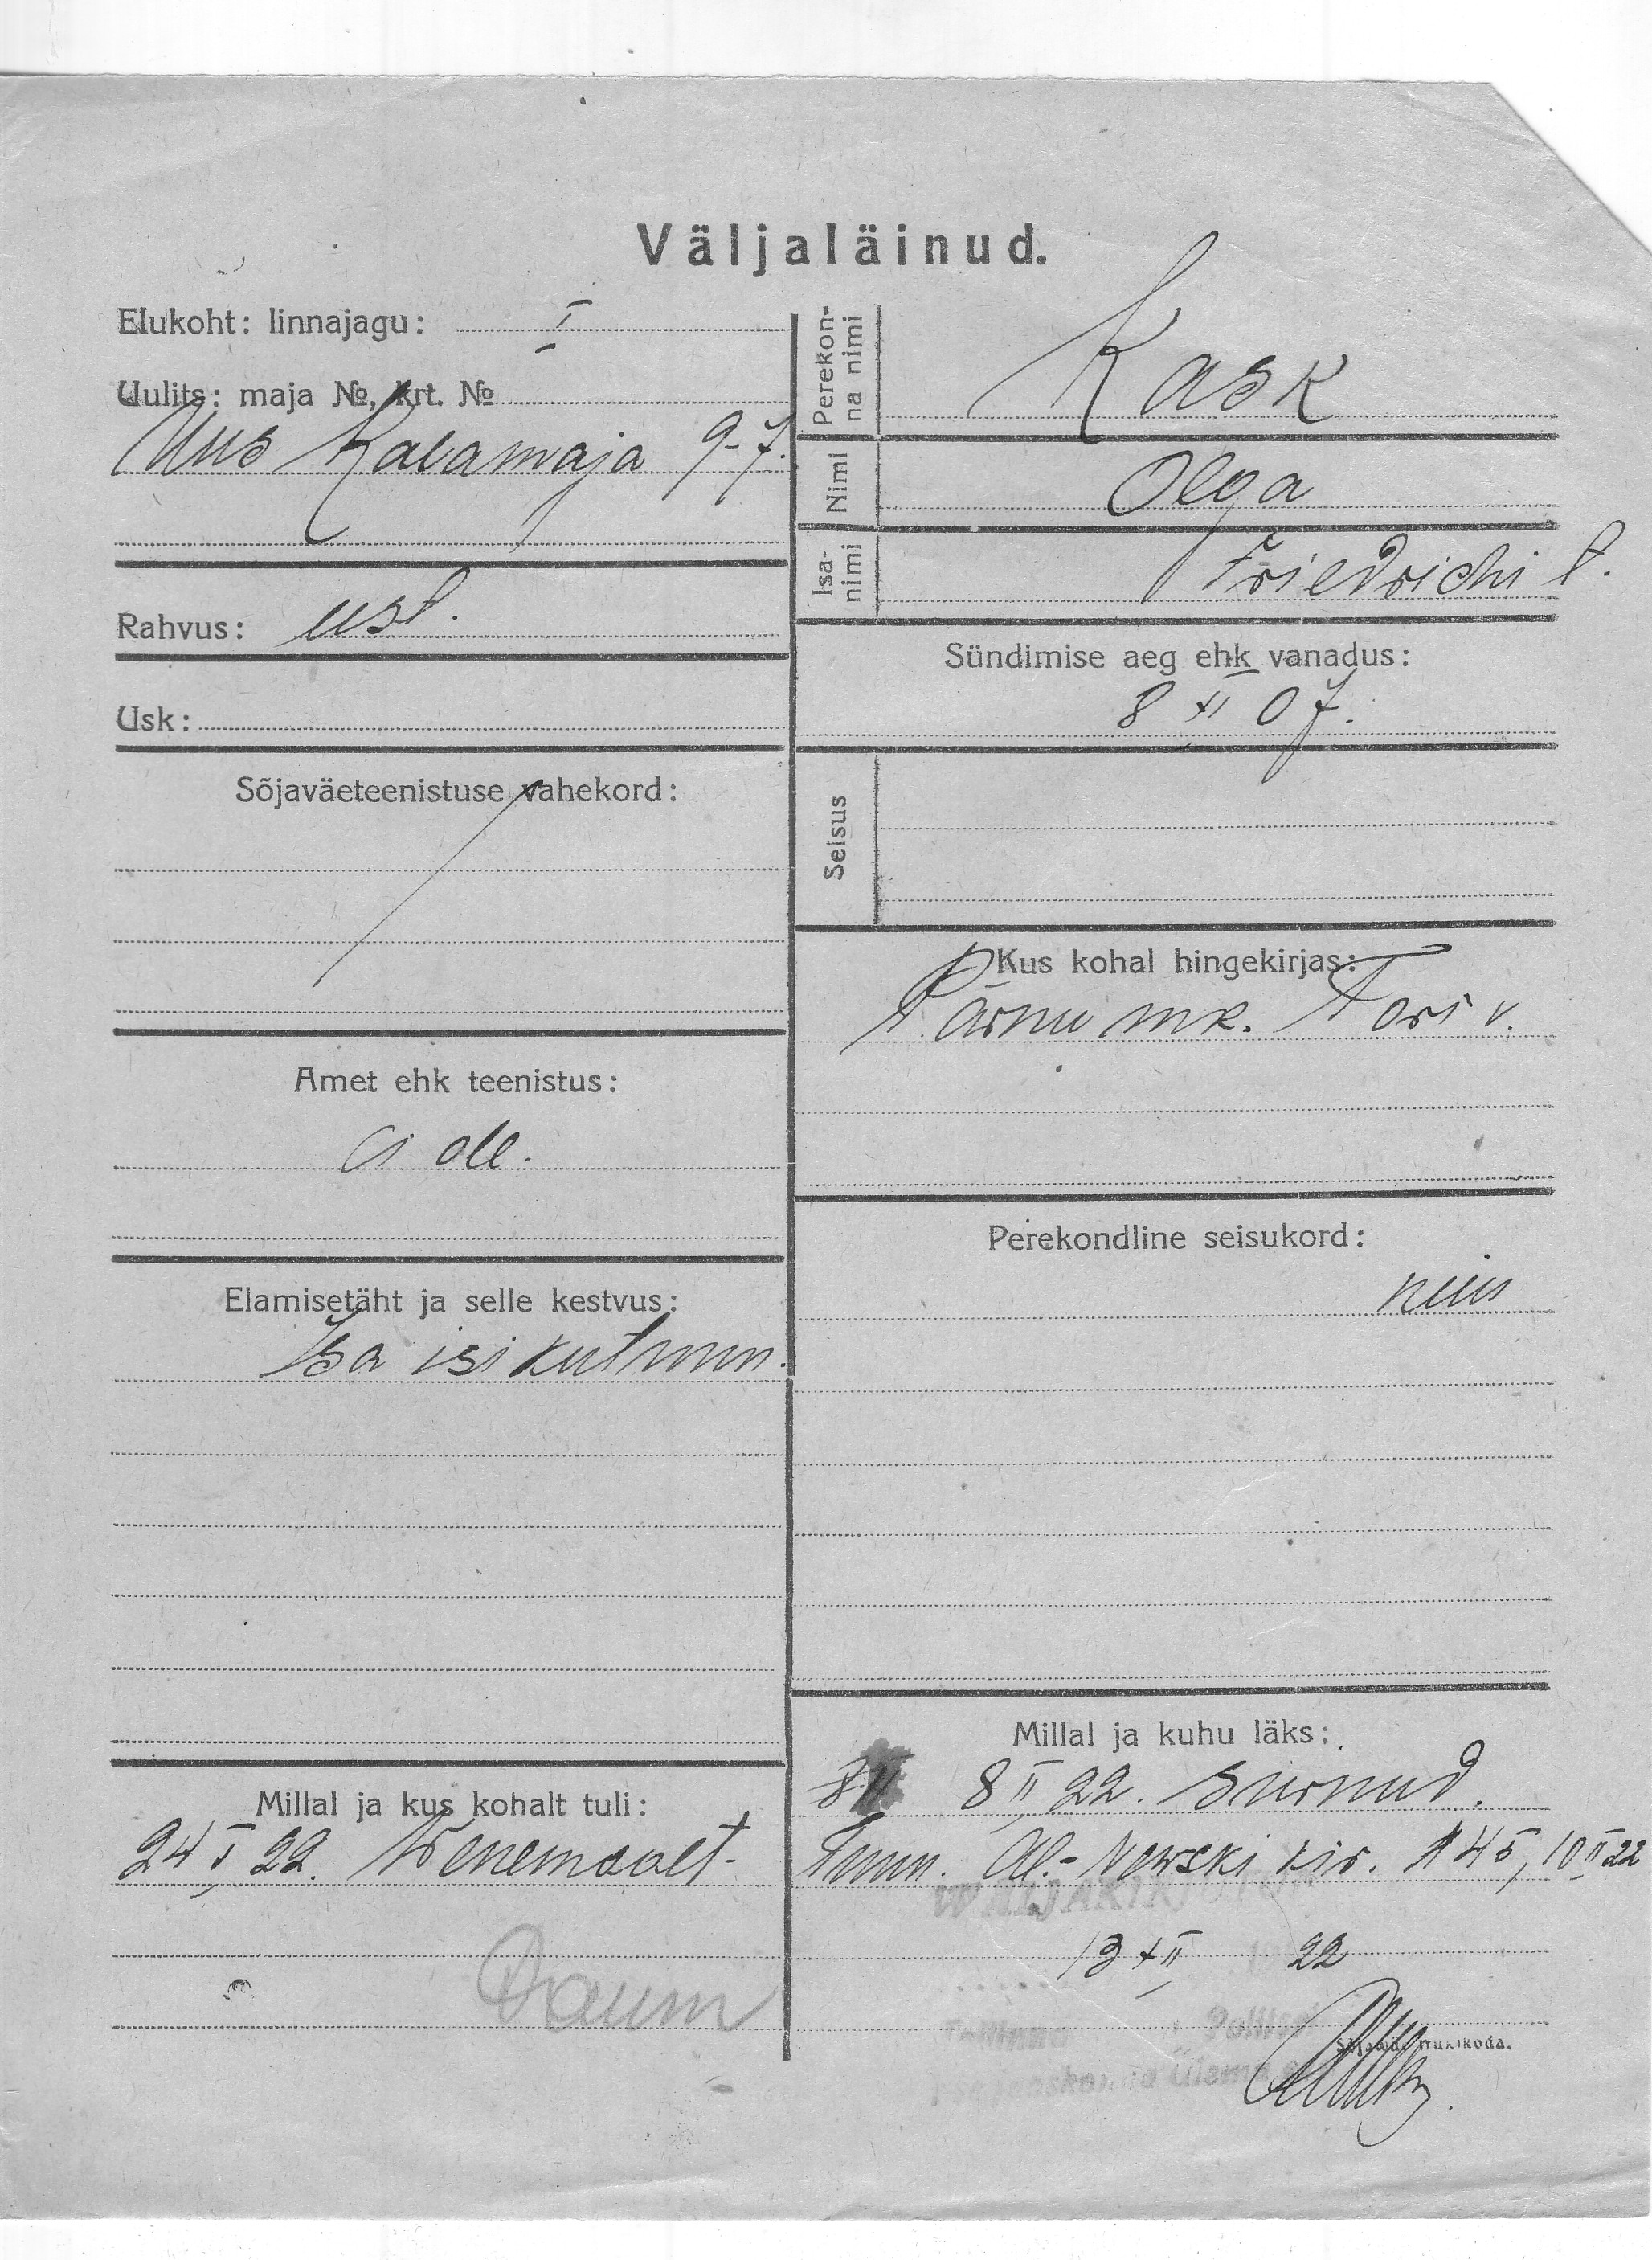 Väljaläinud.
Elukoht: linnajagu: I
Uulits: maja №, krt. №
Uus Kalamaja 9-7.
Rahvus: eest.
Usk:
Sõjaväeteenistuse vahekord:
Amet ehk teenistus:
ei ole.
Elamisetäht ja selle kestvus:
Isa isikutunn.
Millal ja kus kohalt tuli:
24 I 22. Wenemaalt-
Daum
Perekonna nimi
Kask
Nimi
Olga
Isanimi
Friedrichi t.
Sündimise aeg ehk vanadus:
8 XI 07.
Seisus
Kus kohal hingekirjas:
Pärnu mk. Tori v.
Perekondline seisukord:
neiu
Millal ja kuhu läks:
8 II 8 II 22. surnud.
Tunn. Al.-Newski kir. № 45, 10 II 22
WÄLJAKIRJUTUD
13 XII 22
Tallinna Politsei
jaoskonna Ülem
Sõjawäe trükikoda.